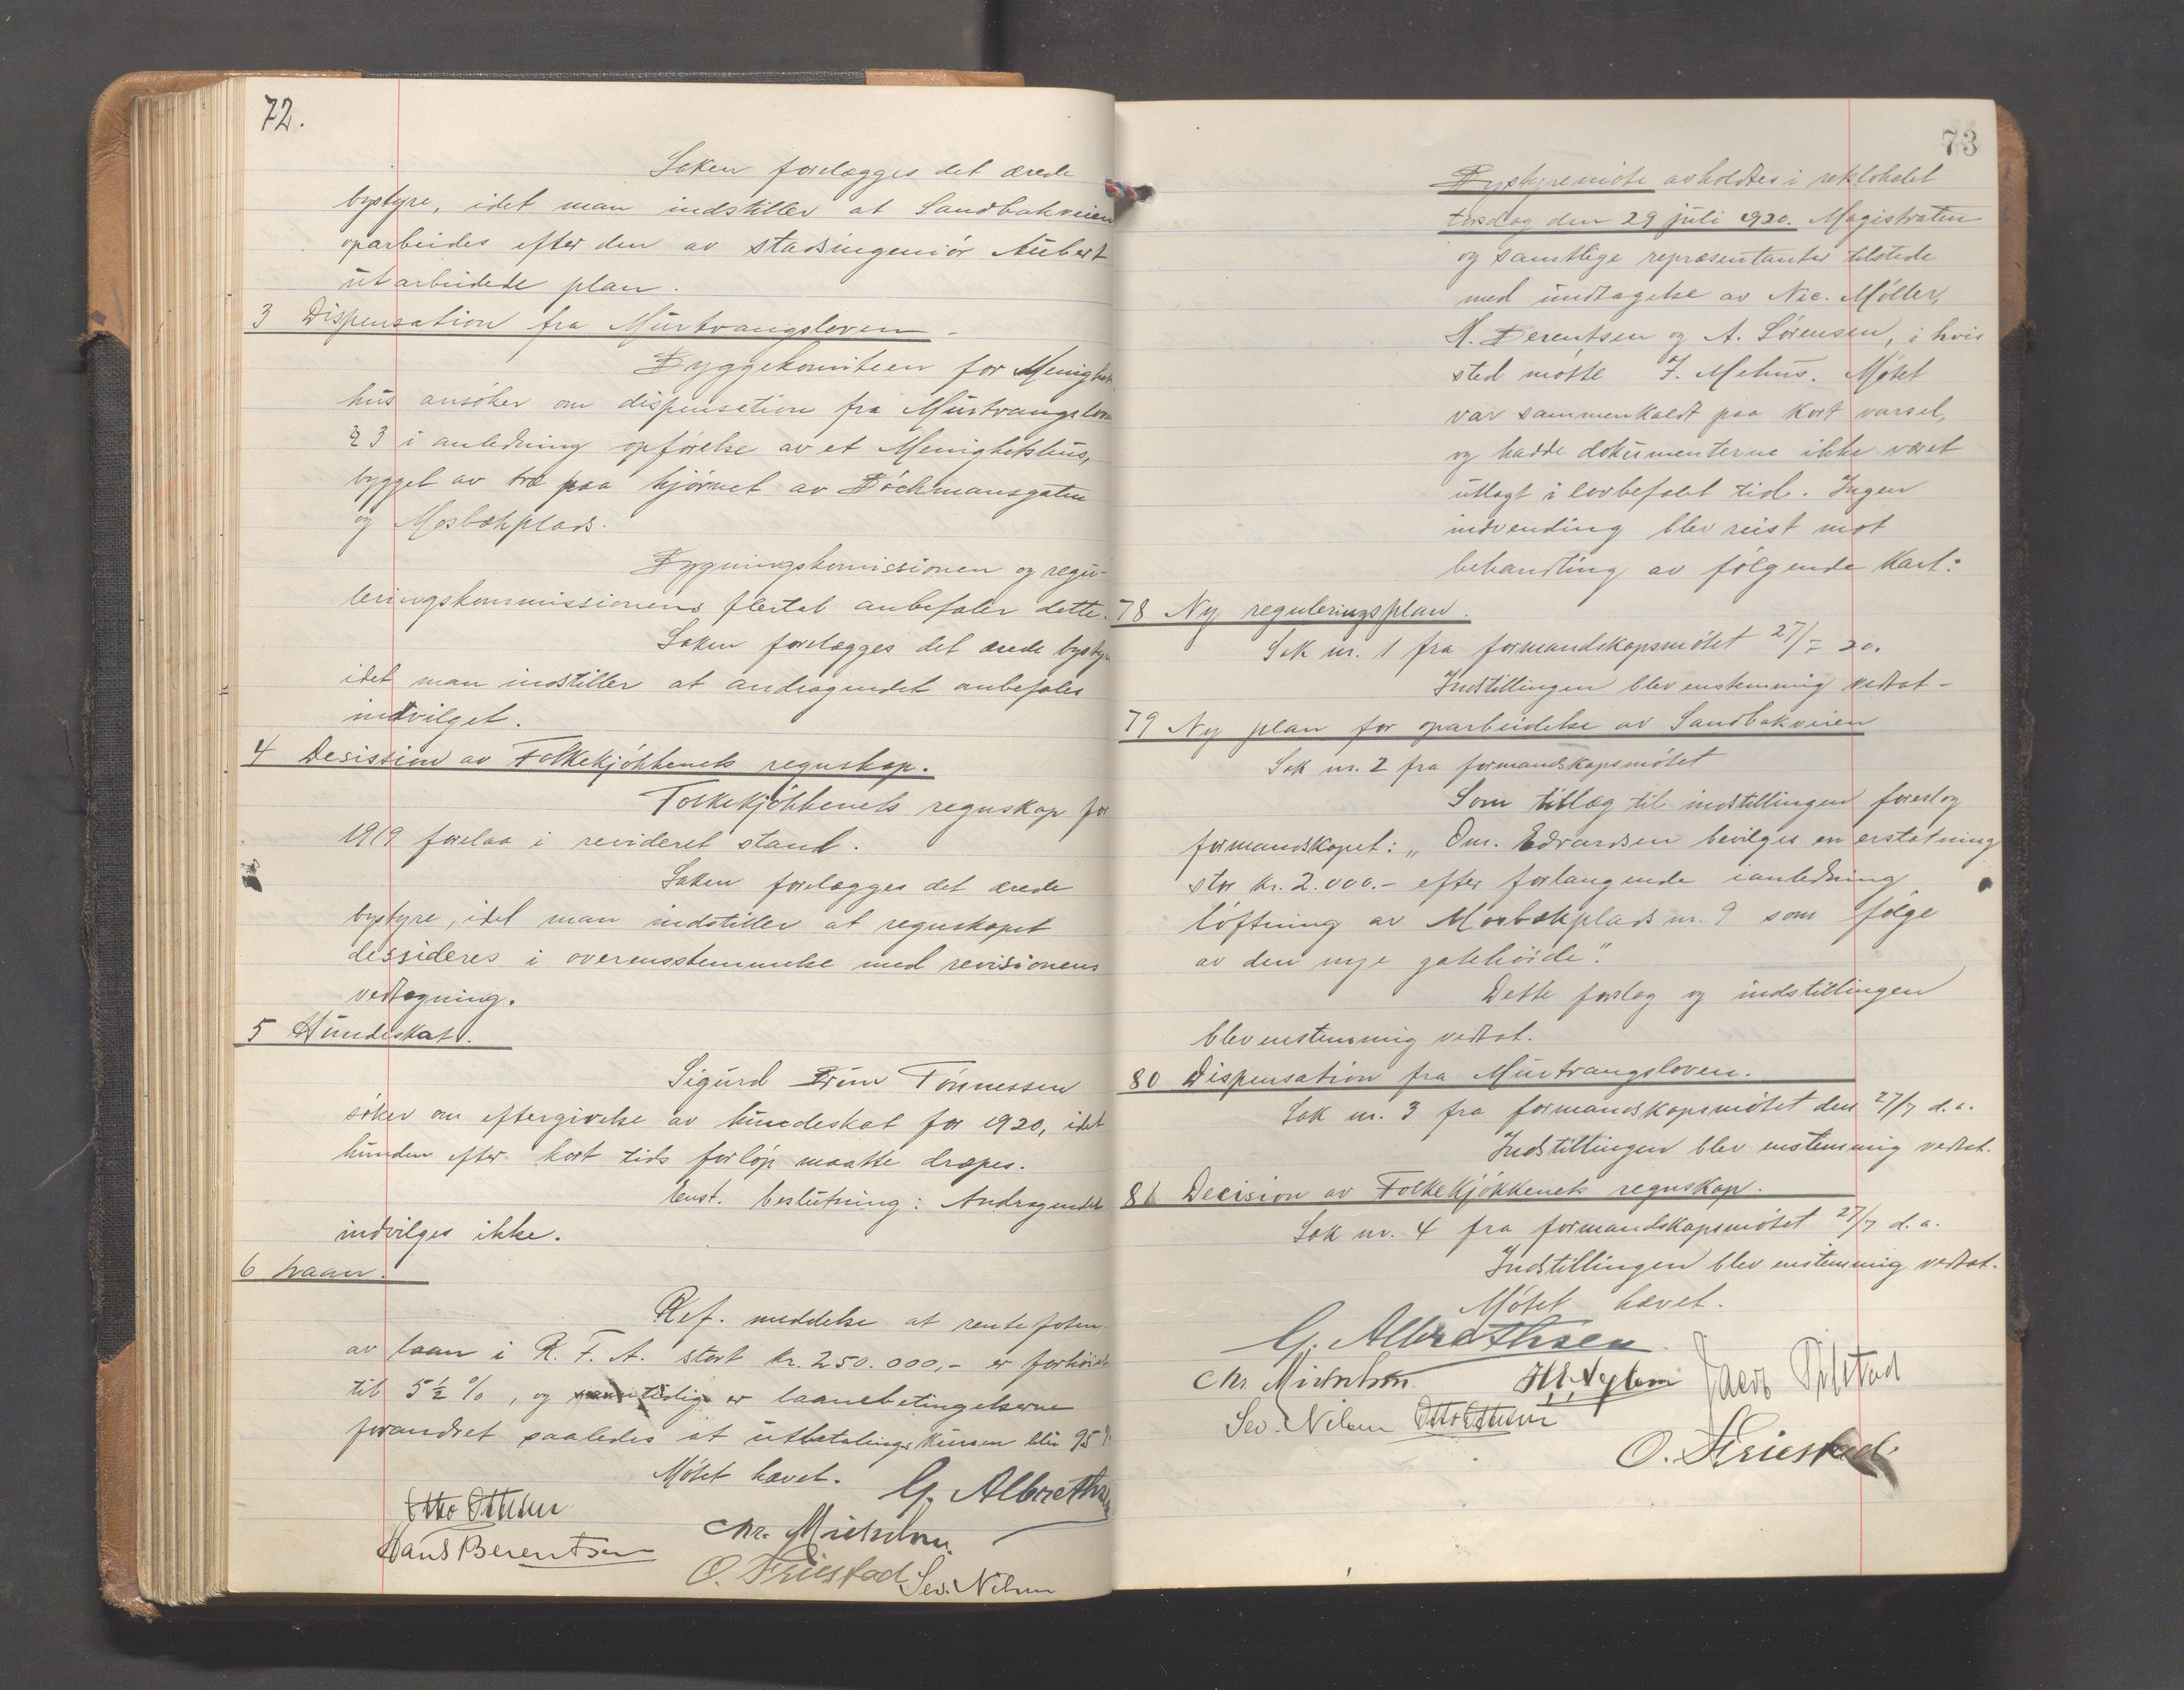 72.
Saken forelægges det ærede
bystyre, idet man indstiller at Sandbakveien
oparbeides efter den av stadsingeniör Aubert
utarbeidede plan.
3 Dispensation fra Murtvangsloven.
Byggekomiteen for Menighets
hus ansöker om dispensation fra Murtvangsloven
§ 3 i anledning opförelse av et Menighetshus,
bygget av træ paa hjörnet av Böckmansgaten
og Mosbækplads.
Bygningskomissionen og regu-
leringskommissionens flertal anbefaler dette.
Saken forelægges det ærede bystyre
idet man indstiller at andragendet anbefales
indvilget.
4 Desission av Folkekjökkenets regnskap.
Folkekjökkenets regnskap for
1919 forelaa i revideret stand.
Saken forelægges det ærede
bystyre, idet man indstiller at regnskapet
dessideres i overensstemmelse med revisionens
vedtegning.
5 Hundeskat.
Sigurd Brun Tönnessen
söker om eftergivelse av hundeskat for 1920, idet
hunden efter kort tids forlöp maatte dræpes.
Enst. beslutning: Andragendet
indvilges ikke.
6 Laan.
Ref. meddelse at rentefoten
av laan i R. F. A. stort kr. 250.000,- er forhöiet
til 5 ½ %, og samtidig er laanebetingelserne
forandret saaledes at utbetalings kursen blir 95 %
Mötet hævet. G. Albrethsen
Otto Ottesen
Hans Berentsen Chr. Michelsen
O. Friestad Sev. Nilsen
73
Bystyremöte avholdtes i
torsdag den 29 juli 1920. Magistraten
og samtlige repræsentanter tilstede
med undtagelse av Nic. Möller,
H. Berentsen og A. Sörensen, i hvis
sted mötte J. Mehus. Mötet
var sammenkaldt paa kort varsel,
og hadde dokumenterne ikke været
utlagt i lovbefalet tid. Ingen
indvending blev reist mot
behandling av fölgende kart:
78 Ny reguleringsplan.
Sak nr. 1 fra formandskapsmötet 27/7 20.
Indstillingen blev enstemmig vedtat -
79 Ny plan for oparbeidelse av Sandbakveien
Sak nr. 2 fra formandskapsmötet
Som tillæg til indstillingen foreslog
formandskapet: „ Om. Edvardsen bevilges en erstatning
stor kr. 2.000.- efter forlangende i anledning
löftning av Mosbækplads nr. 9 som fölge
av den nye gatehöide".
Dette forslag og indstillingen
blev enstemmig vedtat.
80 Dispensation fra Murtvangsloven.
Sak nr. 3 fra formandskapsmötet den 27/7 d.a.
Indstillingen blev enstemmig vedtat.
81 Decision av Folkekjökkenets regnskap.
Sak nr. 4 fra formandskapsmötet 27/7 d.a.
Indstillingen blev enstemmig vedtat.
Mötet hævet.
G. Albrethsen
Chr. Michelsen Jacob
Sev. Nilsen Otto Ottesen
O. Friestad